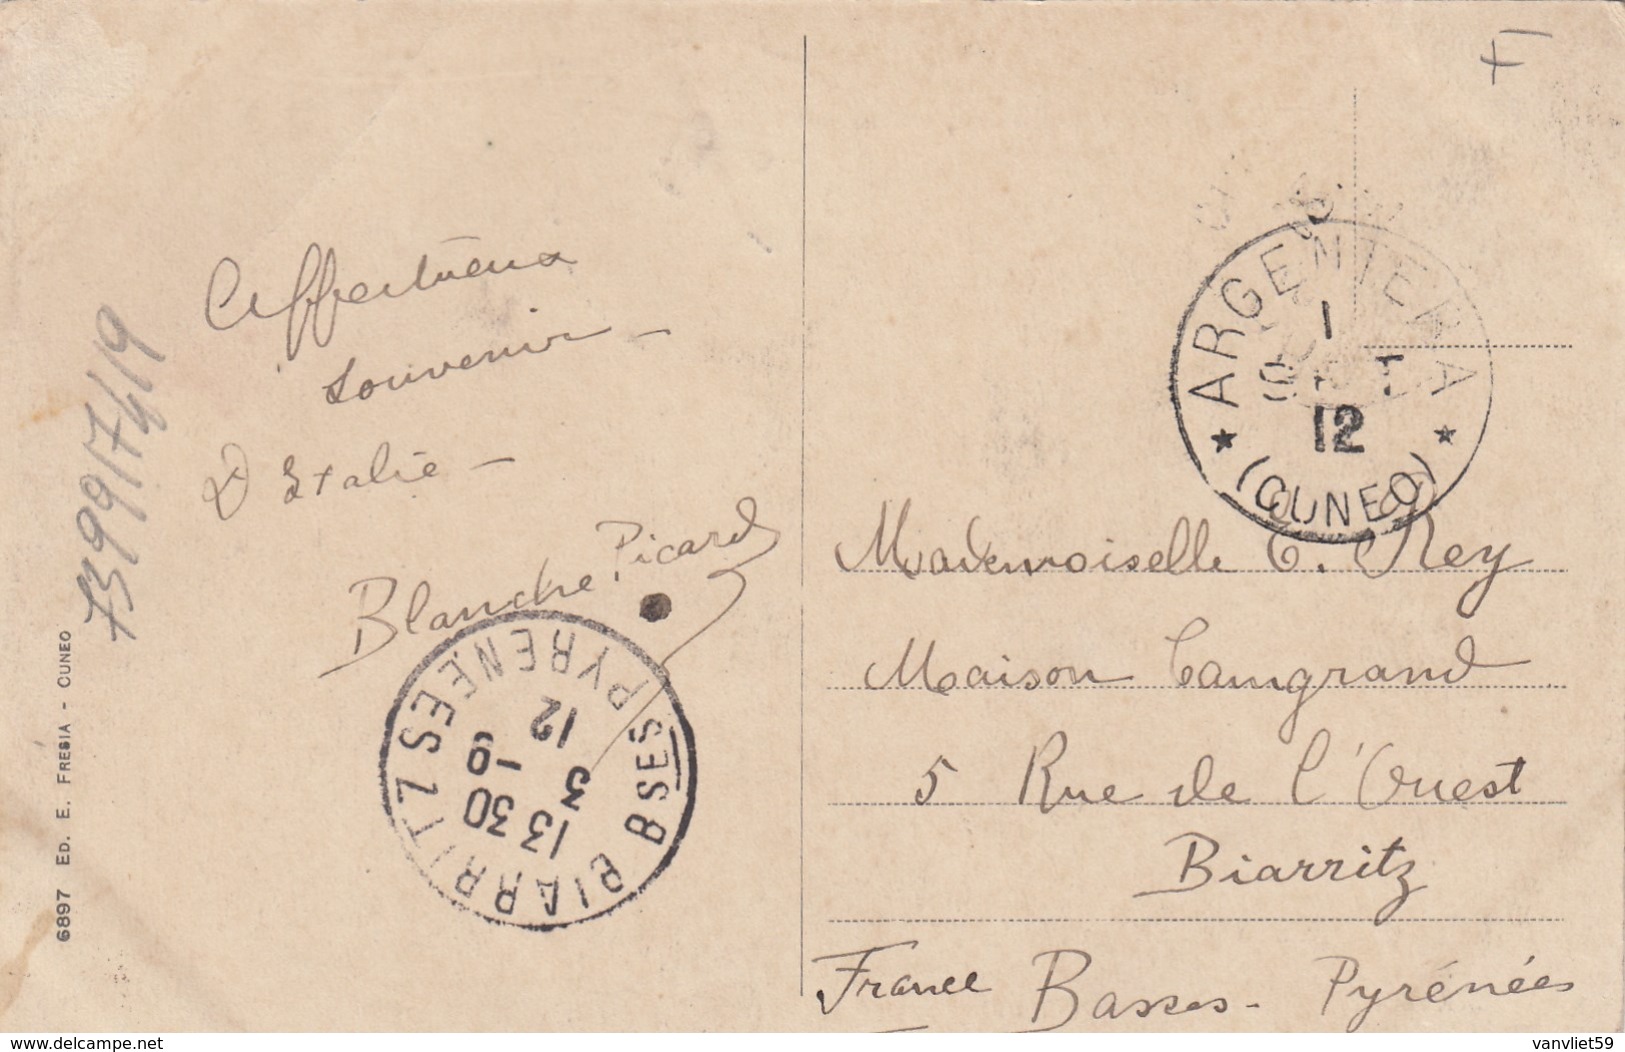 Affectueux
souvenir -
D'Italie -
Blanche Picard
73991/7/4/19
6897 ED. E. FRESIA - CUNEO
BIARRITZ BSES PYRENEES
13 30
3 - 9
12
ARGENTERA
1
12
(CUNEO)
Mademoiselle C. Rey
Maison Camgrand
5 Rue de l'Ouest
Biarritz
France Basses-Pyrénées
delcampe.net
vanvliet59